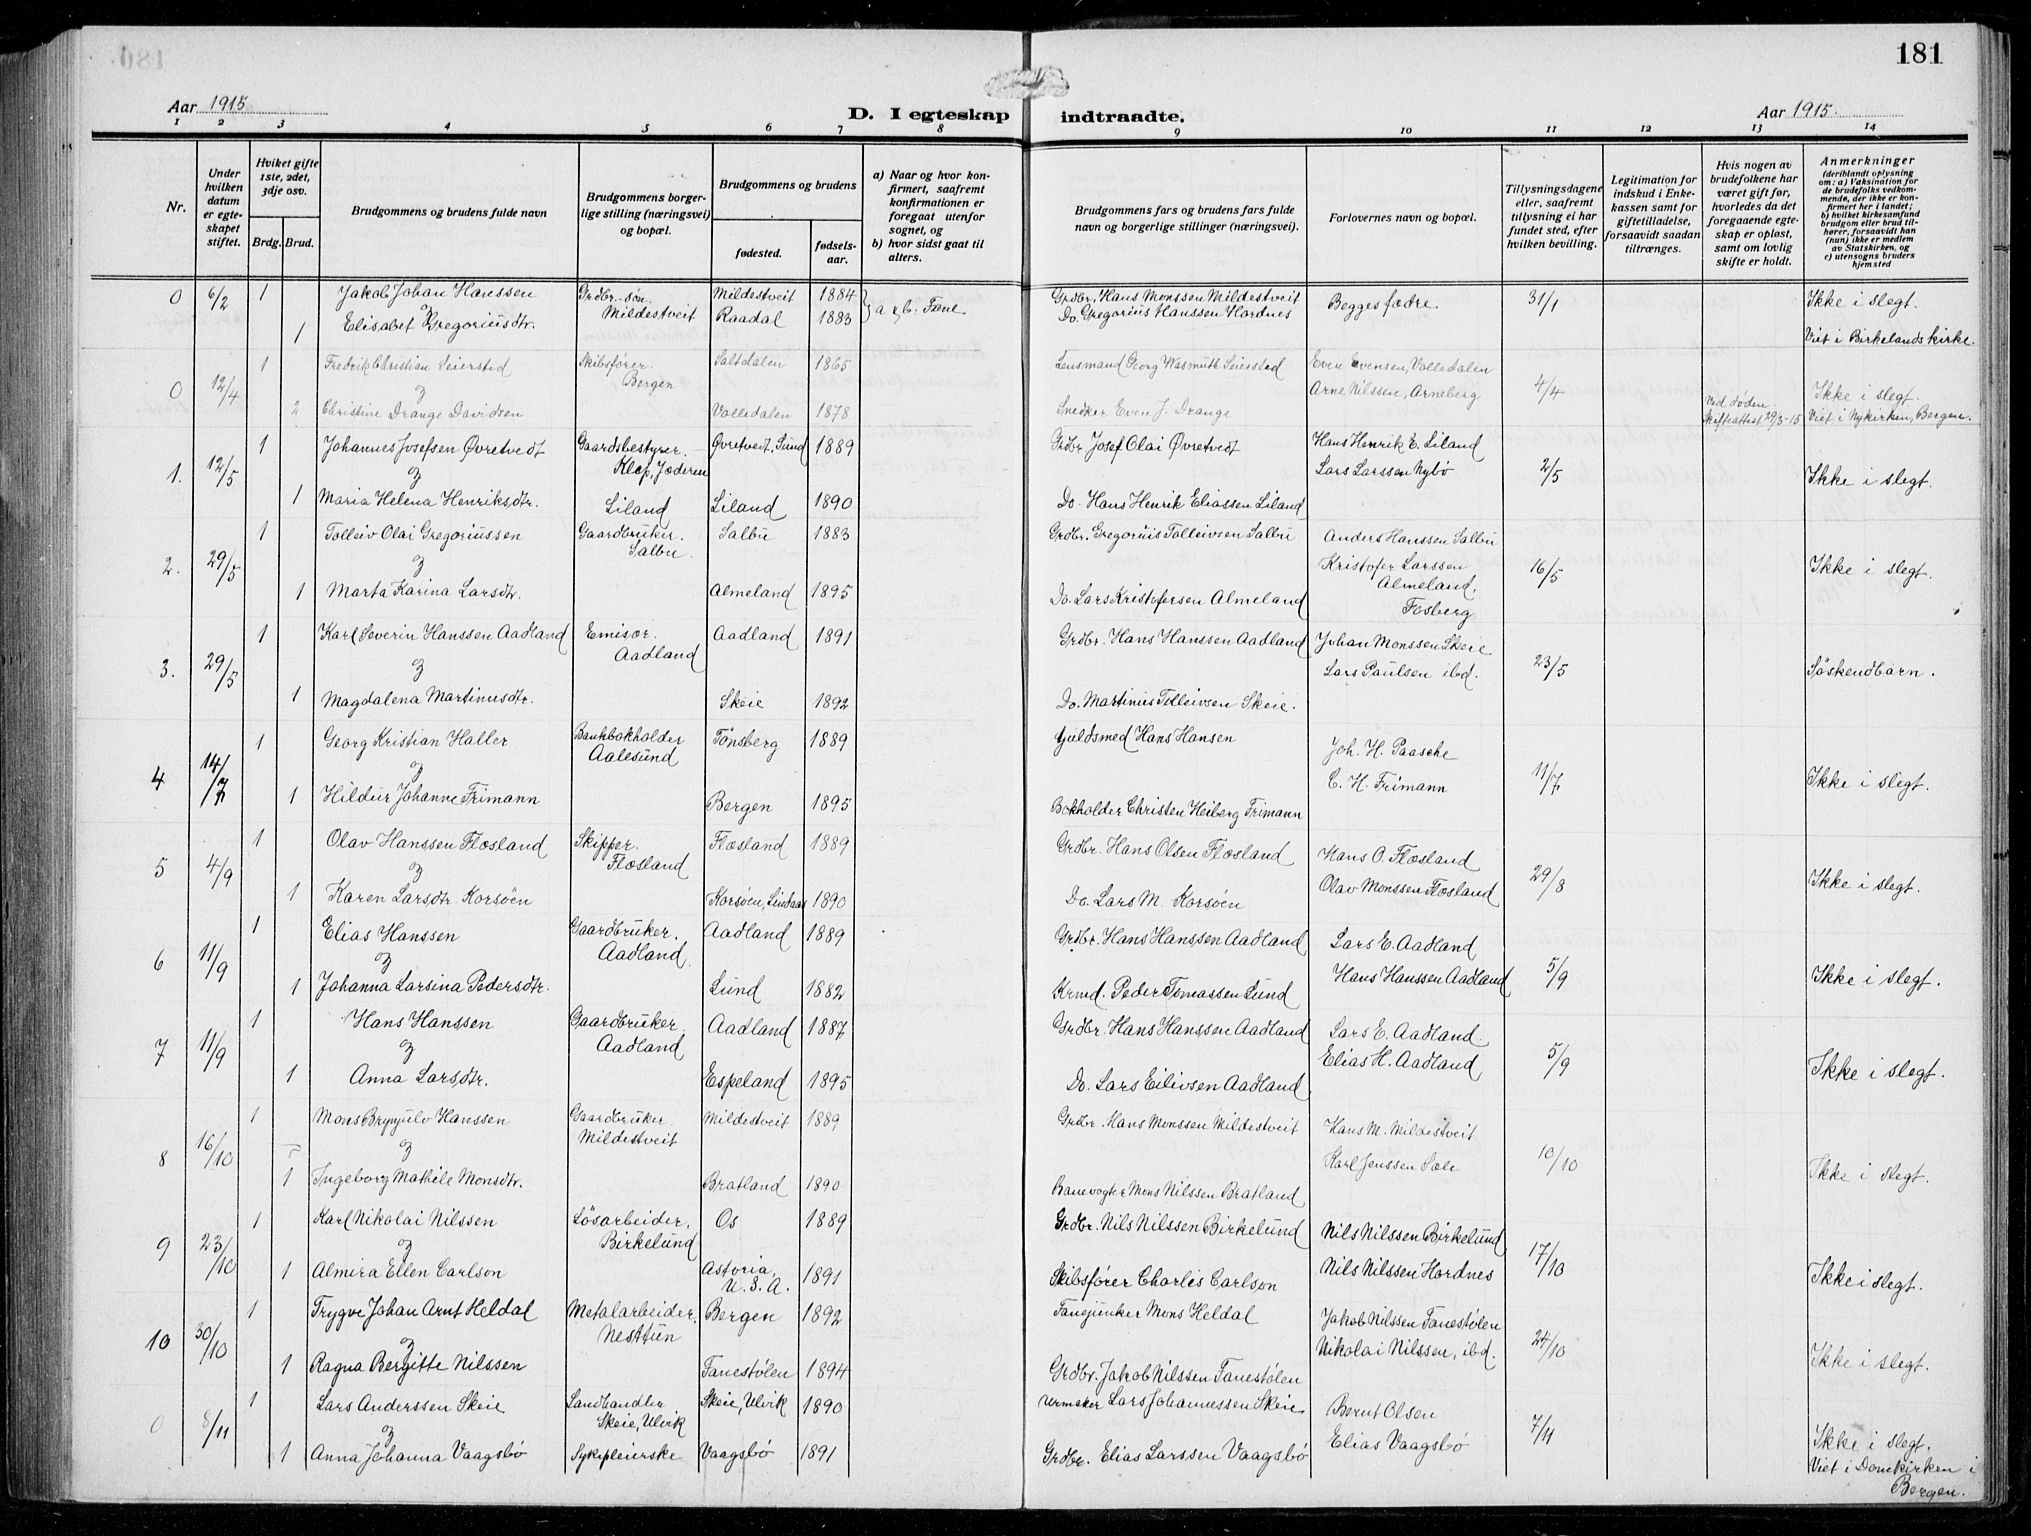 181
Aar 1915
D. I egteskap indtraadte.
Aar 1915.
1 2 3 4 5 6 7 8 9 10 11 12 13 14
Nr.
Under hvilken datum er egteskapet stiftet.
Hviket gifte 1ste, 2det, 3dje osv.
Brdg. Brud.
Brudgommens og brudens fulde navn
Brudgommens borgerlige stilling (næringsvei) og bopæl.
Brudgommens og brudens
fødested.
fødselsaar.
a) Naar og hvor konfirmert, saafremt konfirmationen er foregaat utenfor sognet, og
b) hvor sidst gaat til alters.
Brudgommens fars og brudens fars fulde navn og borgerlige stillinger (næringsvei).
Forlovernes navn og bopæl.
Tillysningsdagene eller, saafremt tillysning ei har fundet sted, efter hvilken bevilling.
Legitimation for indskud i Enkekassen samt for giftetilladelse, forsaavidt saadan tiltrænges.
Hvis nogen av brudefolkene har været gift før, hvorledes da det foregaaende egteskap er opløst, samt om lovlig skifte er holdt.
Anmerkninger (deriblandt oplysning om: a) Vaksination for de brudefolks vedkommende, der ikke er konfirmert her i landet; b) hvilket kirkesamfund brudgom eller brud tilhører, forsaavidt han (hun) ikke er medlem av Statskirken, og c) utensogns bruders hjemsted
0 6/2 1 Jakob Johan Hanssen Grdbr.-søn. Mildestveit Mildestveit 1884 a og b. Fane Grdbr. Hans Monssen Mildestveit Begges fædre 31/1 Ikke i slegt.
og
1 Elisabet Gregoriusdtr. Raadal 1883 Do. Gregorius Hanssen Hordnes Viet i Birkelands kirke.
0 12/4 1 Fredrik Christian Seiersted Skibsfører. Bergen Saltdalen 1865 Lensmand Georg Wasmuth Seiersted Even Evensen, Volledalen 4/4 Ikke i slegt.
og
2 Christine Drange Davidsen Volledalen 1878 Snedker Even J. Drange Arne Nilssen, Arneberg Ved døden. Skifteattest 29/3-15 Viet i Nykirken, Bergen.
1. 12/5 1 Johannes Josefsen Øvretvedt Gaardsbestyrer. Klep, Jæderen Øvretveit, Sund 1889 Grdbr. Josef Olai Øvretvedt Hans Henrik E. Liland 2/5 Ikke i slegt.
og
1 Maria Helena Henriksdtr. Liland Liland 1890 Do. Hans Henrik Eliassen Liland Lars Larssen Nybø
2. 29/5 1 Tolleiv Olai Gregoriussen Gaardbruker. Salbu. Salbu 1883 Grdbr. Gregorius Tolleivsen Salbu Anders Hanssen Salbu 16/5 Ikke i slegt.
og
1 Marta Karina Larsdtr. Almeland 1895 Do. Lars Kristofersen Almeland Kristofer Larssen Almeland, Fosberg
3. 29/5 1 Karl Severin Hanssen Aadland Emisær. Aadland Aadland 1891 Grdbr. Hans Hanssen Aadland Johan Monssen Skeie 23/5 Søskendbarn.
og
1 Magdalena Martinusdtr. Skeie 1892 Do. Martinus Tolleivsen Skeie. Lars Paulsen ibd.
4 14/7 1 Georg Kristian Haller Bankbokholder Aalesund Tønsberg 1889 Guldsmed Hans Hansen Joh. H. Paasche 11/7 Ikke i slegt.
og
1 Hildur Johanne Frimann Bergen 1895 Bokholder Christen Heiberg Frimann C. H. Frimann
5 4/9 1 Olav Hanssen Flæsland Skipper. Flæsland Flæsland 1889 Grdbr. Hans Olsen Flæsland Hans O. Flæsland 29/8 Ikke i slegt.
og
1 Karen Larsdtr. Korsøen Korsøen, Lindaas 1890 Do. Lars M. Korsøen Olav Monssen Flæsland
6 11/9 1 Elias Hanssen Gaardbruker. Aadland Aadland 1889 Grdbr. Hans Hanssen Aadland Lars E. Aadland 5/9 Ikke i slegt.
og
1 Johanna Larsina Pedersdtr. Lund 1882 Krmd. Peder Tomassen Lund Hans Hanssen Aadland
7 11/9 1 Hans Hanssen Gaardbruker. Aadland Aadland 1887 Grdbr. Hans Hanssen Aadland Lars E. Aadland. 5/9 Ikke i slegt.
og
1 Anna Larsdtr. Espeland 1895 Do. Lars Eilivsen Aadland Elias H. Aadland
8 16/10 1 Mons Brynjulv Hanssen Gaardbruker. Mildestveit Mildestveit 1889 Grdbr. Hans Monssen Mildestveit Hans M. Mildestveit 10/10 Ikke i slegt.
og
1 Ingeborg Mathile Monsdtr. Bratland 1890 Banevogter Mons Nilssen Bratland Karl Jenssen Sæle
9 23/10 1 Karl Nikolai Nilssen Løsarbeider. Birkelund Os 1889 Grdbr. Nils Nilssen Birkelund Nils Nilssen Birkelund 17/10 Ikke i slegt.
og
1 Almira Ellen Carlson Astoria, U. S. A. 1891 Skibsfører Charlis Carlson Nils Nilssen Hordnes
10 30/10 1 Trygve Johan Arnt Heldal Metalarbeider, Nesttun Bergen 1892 Fanejunker Mons Heldal Jakob Nilssen Fanestølen 24/10 Ikke i slegt.
og
1 Ragna Bergitte Nilssen Fanestølen 1894 Grdbr. Jakob Nilssen Fanestølen Nikolai Nilssen, ibd.
0 8/11 1 Lars Anderssen Skeie Landhandler Skeie, Ulvik Skeie, Ulvik 1890 Urmaker Lars Johannessen Skeie Bernt Olsen 7/11 Ikke i slegt.
og
1 Anna Johanna Vaagsbø Sykepleierske Vaagsbø 1891 Grdbr. Elias Larssen Vaagsbø Elias Vaagsbø Viet i Domkirken i Bergen.